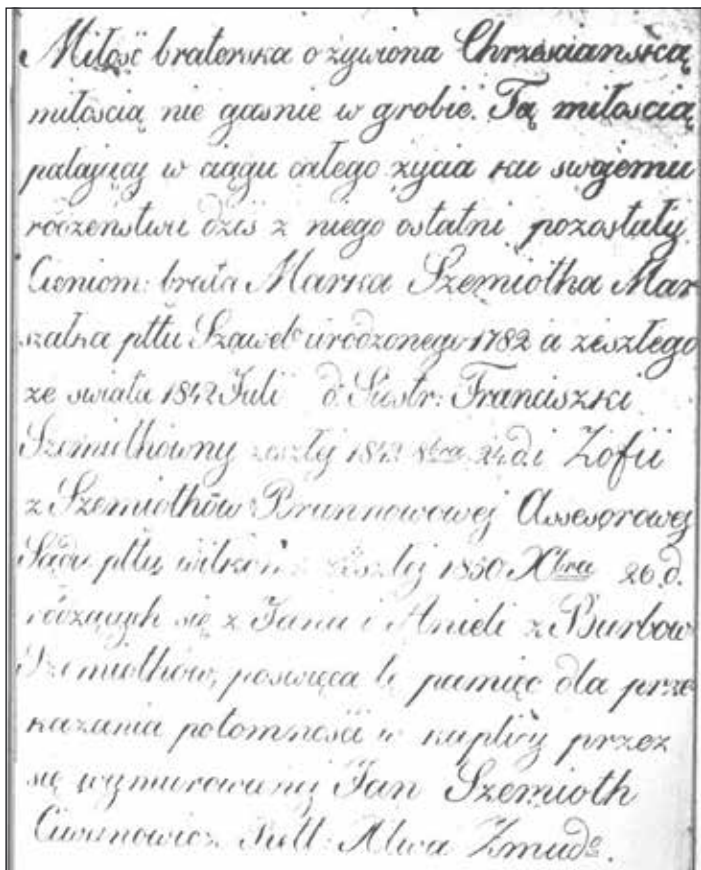 Miłość braterska ożywiona Chrześcianską
miłoscią nie gasnie w grobie. Tą miłoscią
pałający w ciągu całego życia ku swojemu
rodzeństwu dziś z niego ostatni pozostały
Cieniom: brata Marka Szemiotha Mar
szałka pttu Szawel urodzonego 1782 a zeszłego
ze swiata 1842 Juli d. Siostr: Franciszki
Szemiothówny zeszłej 184 8bra 24 d. i Zofii
z Szemiothów Brunnowowej Assesorowej
Sądu pttu wiłkom zeszłej 1850 Xbra 26. d.
rodzących się z Jana i Anieli z Burbow
Szemiothów, poswięca tę pamięć dla prze
kazania potomności w kaplicy przez
się wymurowanej Jan Szemioth
Ciwunowicz Xtwa Zmudz.